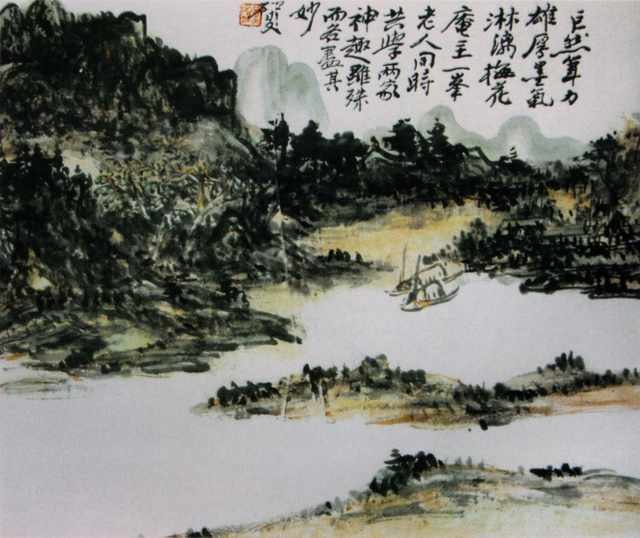 巨然筆力
雄厚墨氣
淋漓梅花
庵主一峯
老人同時
共學兩家
神趣雖殊
而各盡其
妙